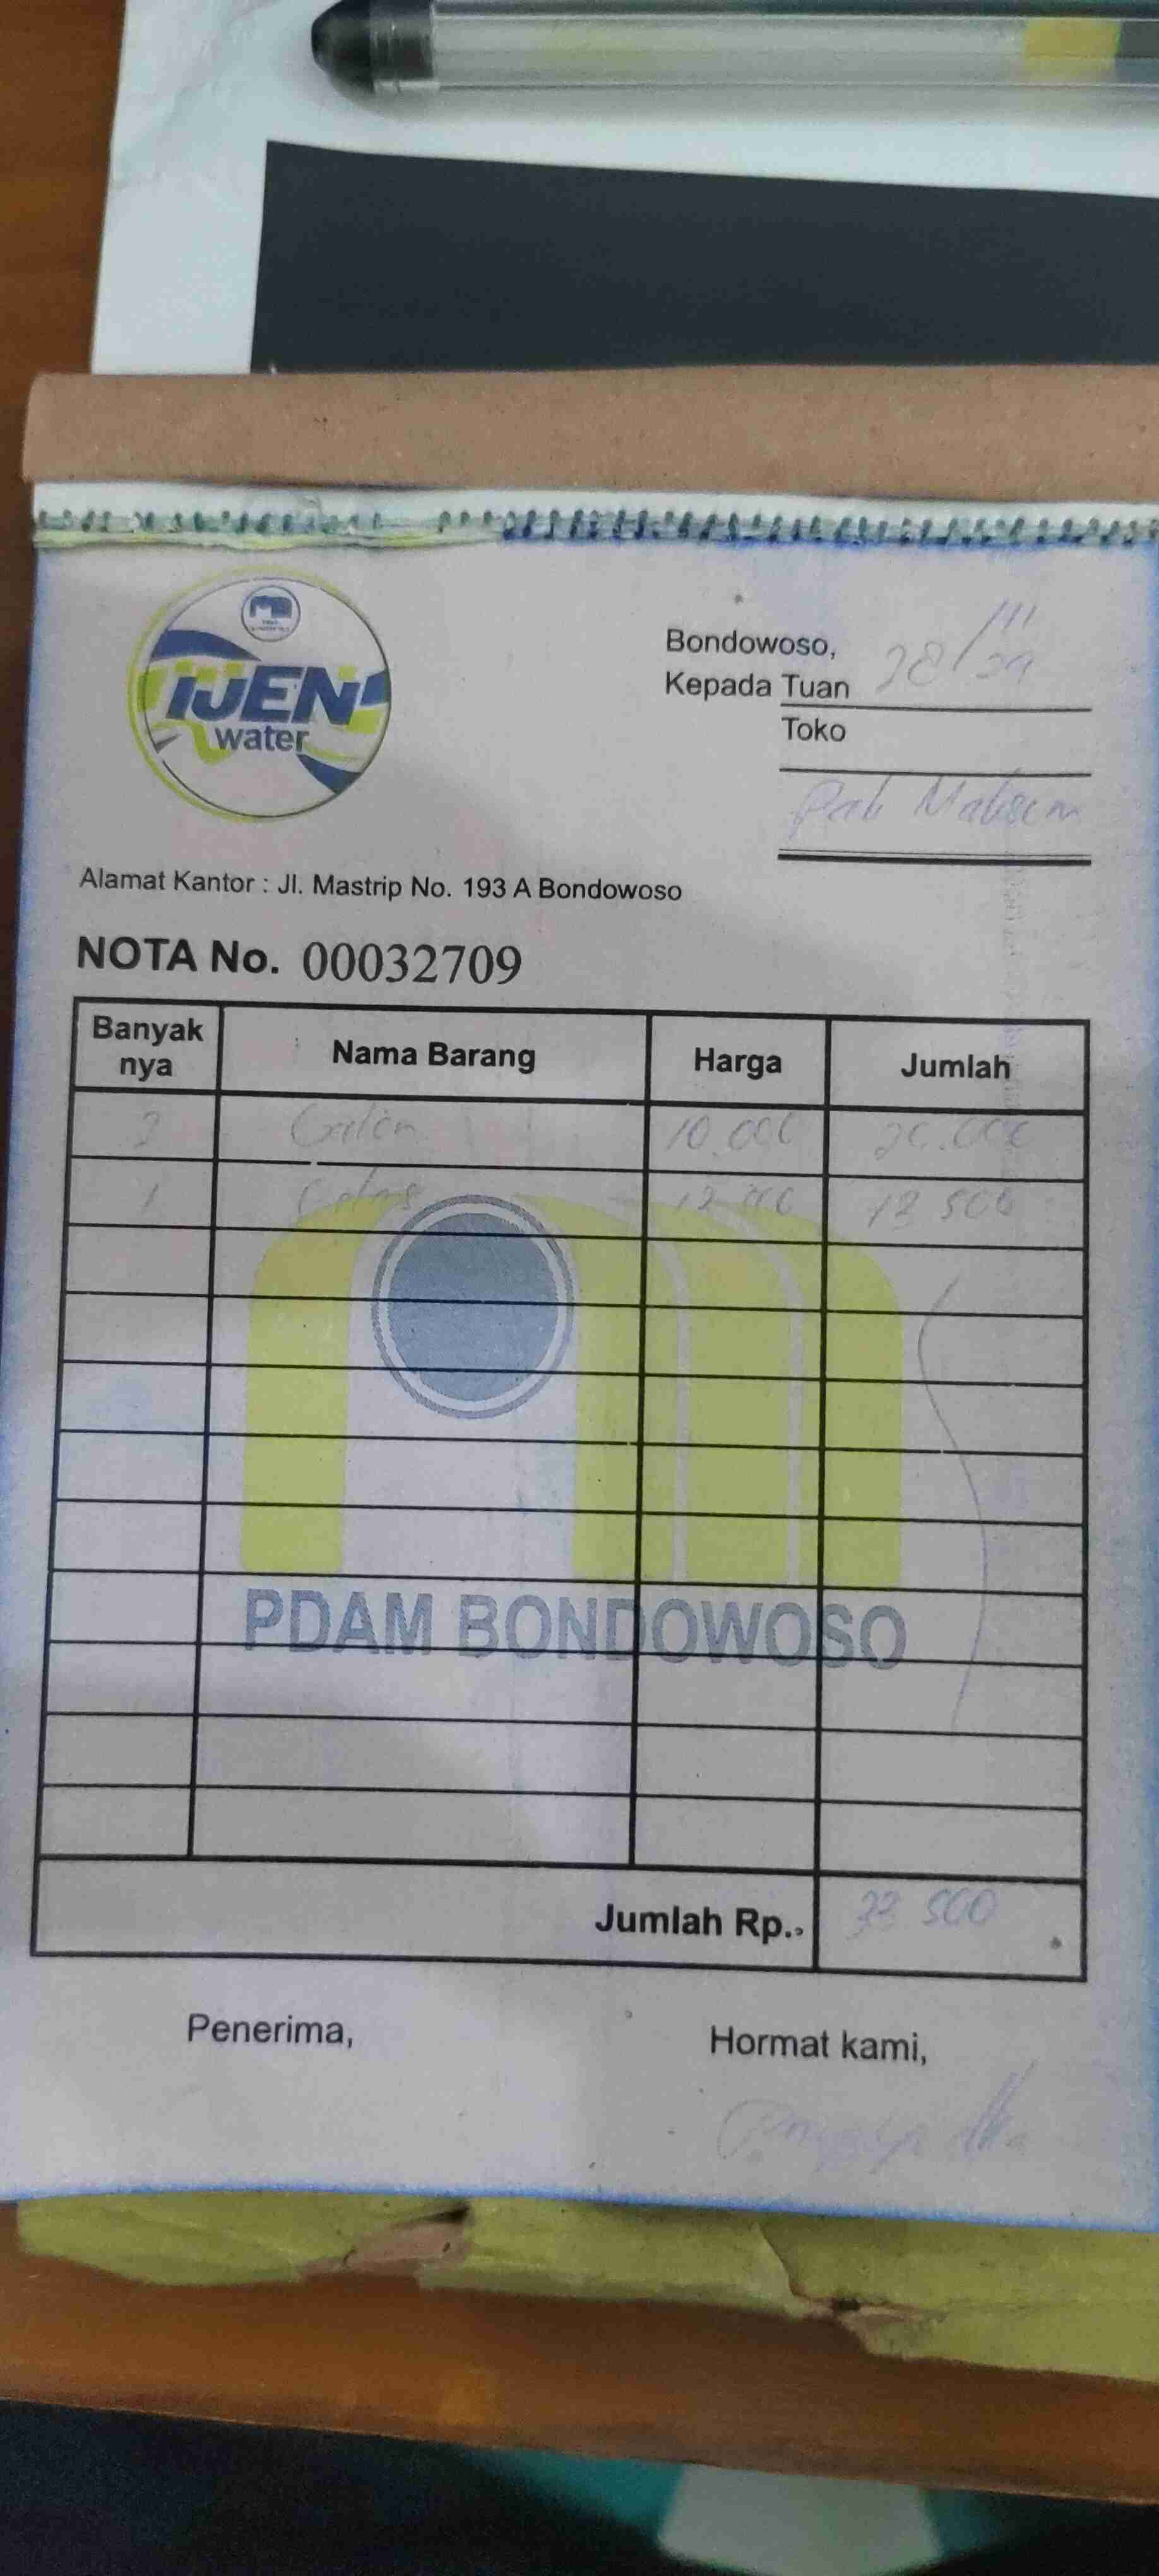 IJEN
water
Bondowoso, 28/III
Kepada Tuan
Toko
Pak
Alamat Kantor : Jl. Mastrip No. 193 A Bondowoso
NOTA No. 00032709
Banyak nya Nama Barang Harga Jumlah
2 Galon 10.000 20.000
1 Gelas 13 500
PDAM BONDOWOSO
Jumlah Rp., 33 500
Penerima, Hormat kami,